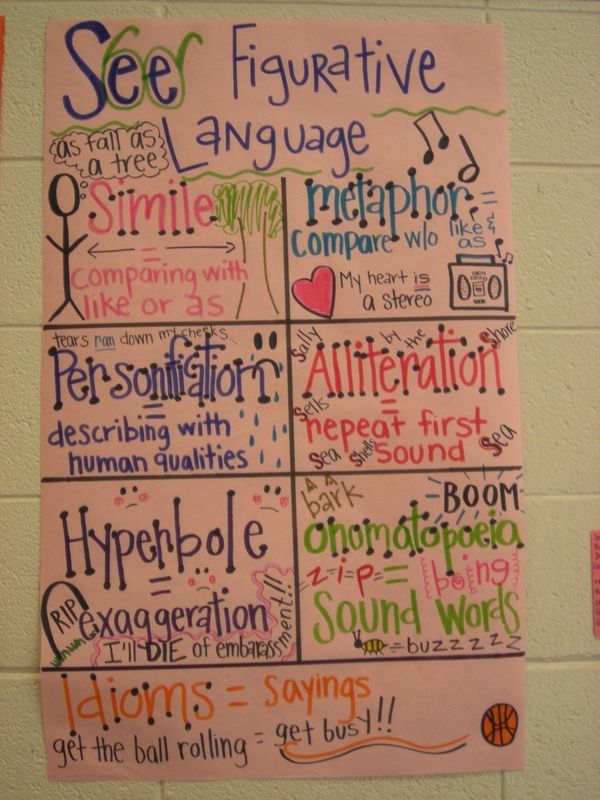 See Figurative
Language
as tall as
a tree
Simile
=
comparing with
like or as
metaphor =
compare w/o like &
as
My heart is
a stereo
tears ran down my cheeks...
Personification
=
describing with
human qualities
Sally
by
the
Shore
Alliteration
=
Sells
repeat first
sound
Sea
Shells
Sea
Hyperbole
=
exaggeration
RIP
I'll DIE of embarassment!!!
bark
BOOM
onomatopoeia
z-i-p = boing
Sound words
= buzzzzz
Idioms = sayings
get the ball rolling = get busy!!